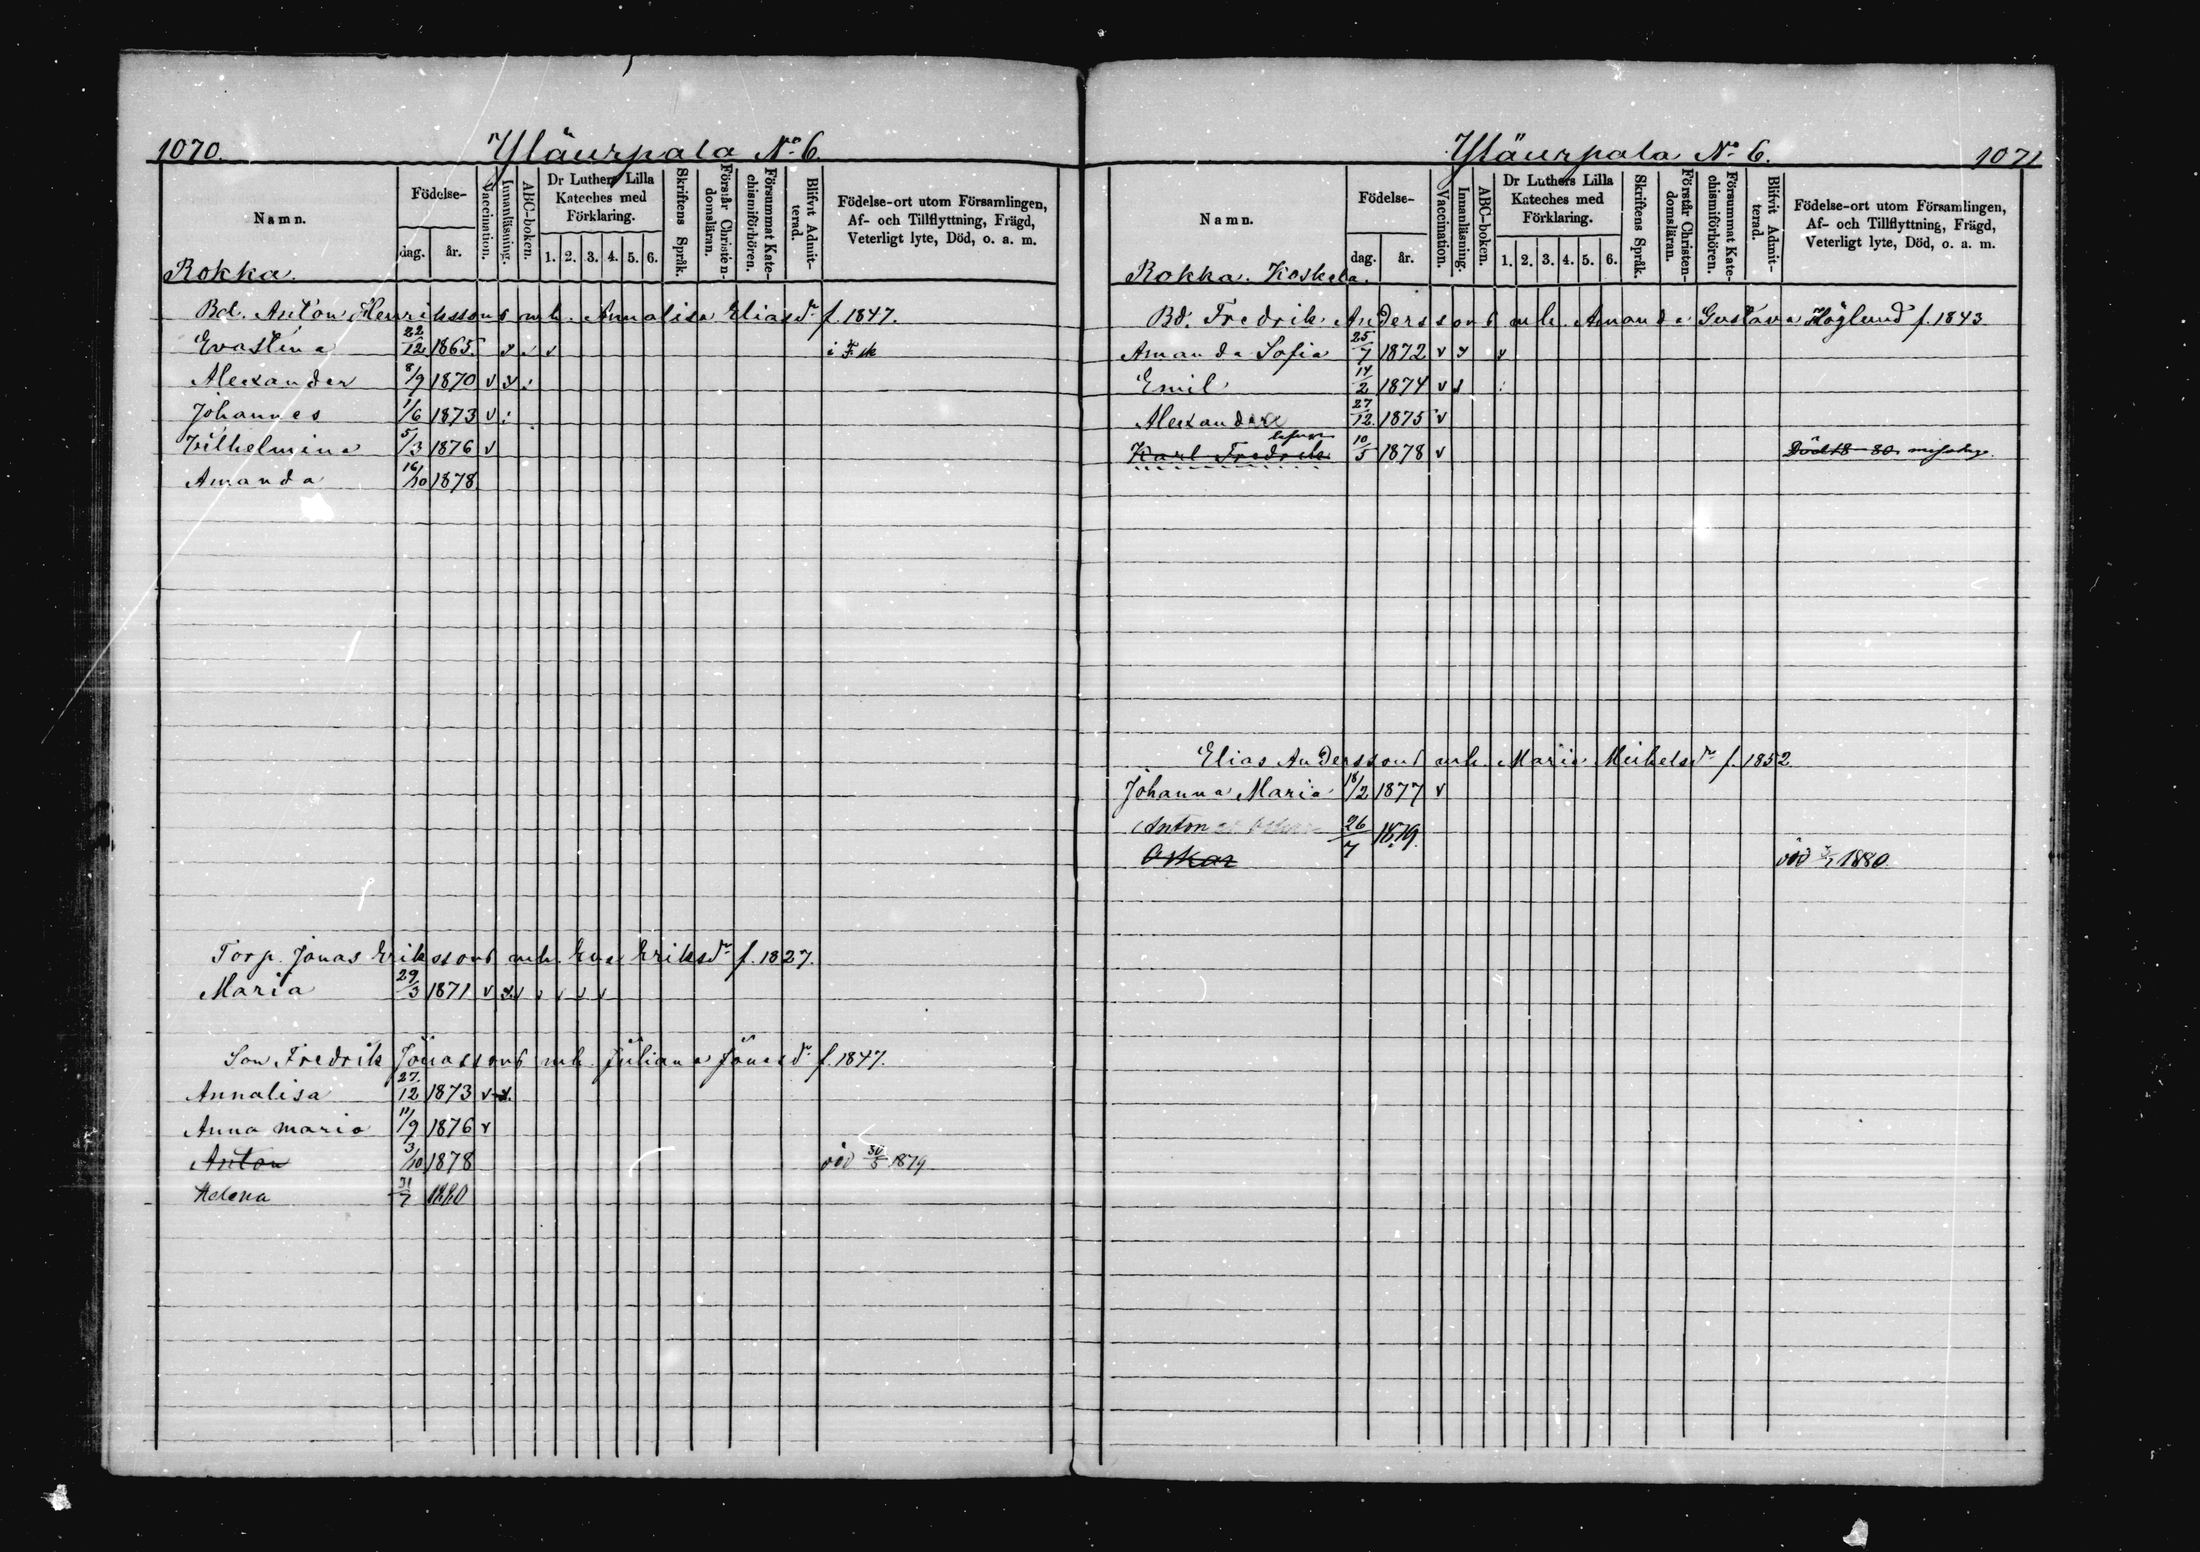 1070.
Yläurpala No 6.
Namn.
Födelse-
dag.
år.
Vaccination.
Innanläsning.
ABC-boken.
Dr Luthers Lilla Kateches med Förklaring.
1. 2. 3. 4. 5. 6.
Skriftens Språk.
Förstår Christen-domsläran.
Försummat Kate-chismiförhören.
Blifvit Admit-terad.
Födelse-ort utom Församlingen,
Af- och Tillflyttning, Frägd,
Veterligt lyte, Död, o. a. m.
Rokka.
Bd. Anton Henrikssons m.h. Annalisa Eliasdr f. 1847.
Evastina 22/12 1865.
Alexander 8/9 1870 v
Johannes 1/6 1873 v
Wilhelmina 5/3 1876 v
Amanda 16/10 1878
Torp. Jonas Erikssons m.h. Eva Eriksdr f. 1827.
Maria 29/3 1871 v
Son Fredrik Jonassons m.h. Juliana Jonasdr f. 1847.
Annalisa 27/12 1873 v
Anna Maria 11/9 1876 v
Anton 3/10 1878 död 30/5 1879
Helena 31/7 1880
Yläurpala No 6.
1071
Namn.
Födelse-
dag.
år.
Vaccination.
Innanläsning.
ABC-boken.
Dr Luthers Lilla Kateches med Förklaring.
1. 2. 3. 4. 5. 6.
Skriftens Språk.
Förstår Christen-domsläran.
Försummat Kate-chismiförhören.
Blifvit Admit-terad.
Födelse-ort utom Församlingen,
Af- och Tillflyttning, Frägd,
Veterligt lyte, Död, o. a. m.
Rokka. Koskela.
Bd. Fredrik Anderssons m.h. Amanda Gustava Höglund f. 1843
Amanda Sofia 25/7 1872 v
Emil 14/2 1874 v
Alexander 27/12 1875 v
Karl Fredrik 10/5 1878 v
Elias Anderssons m.h. Maria Mickelsdr f. 1852
Johanna Maria 18/2 1877 v
Anton 26/7 1879.
Oskar död 1880.